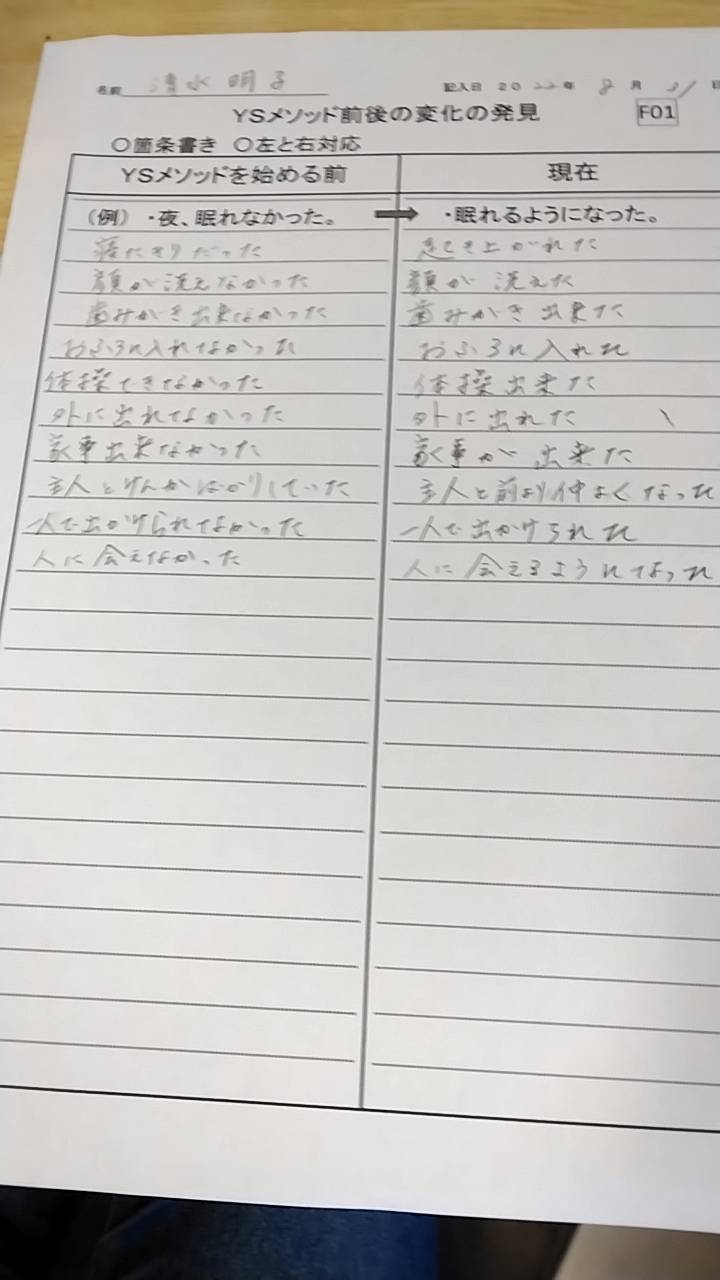 名前 清水 明子 記入日 2022年 8月 21日
YSメソッド前後の変化の発見 F01
○箇条書き ○左と右対応
YSメソッドを始める前 現在
(例) ・夜、眠れなかった。 → ・眠れるようになった。
寝たきりだった 起き上がれた
顔が洗えなかった 顔が洗えた
歯みがき出来なかった 歯みがき出来た
おふろに入れなかった おふろに入れた
体操できなかった 体操出来た
外に出れてなかった 外に出れた
家事出来なかった 家事が出来た
主人とけんかばかりしていた 主人と前より仲よくなった
一人で出かけられてなかった 一人で出かけられた
人に会えなかった 人に会えるようになった